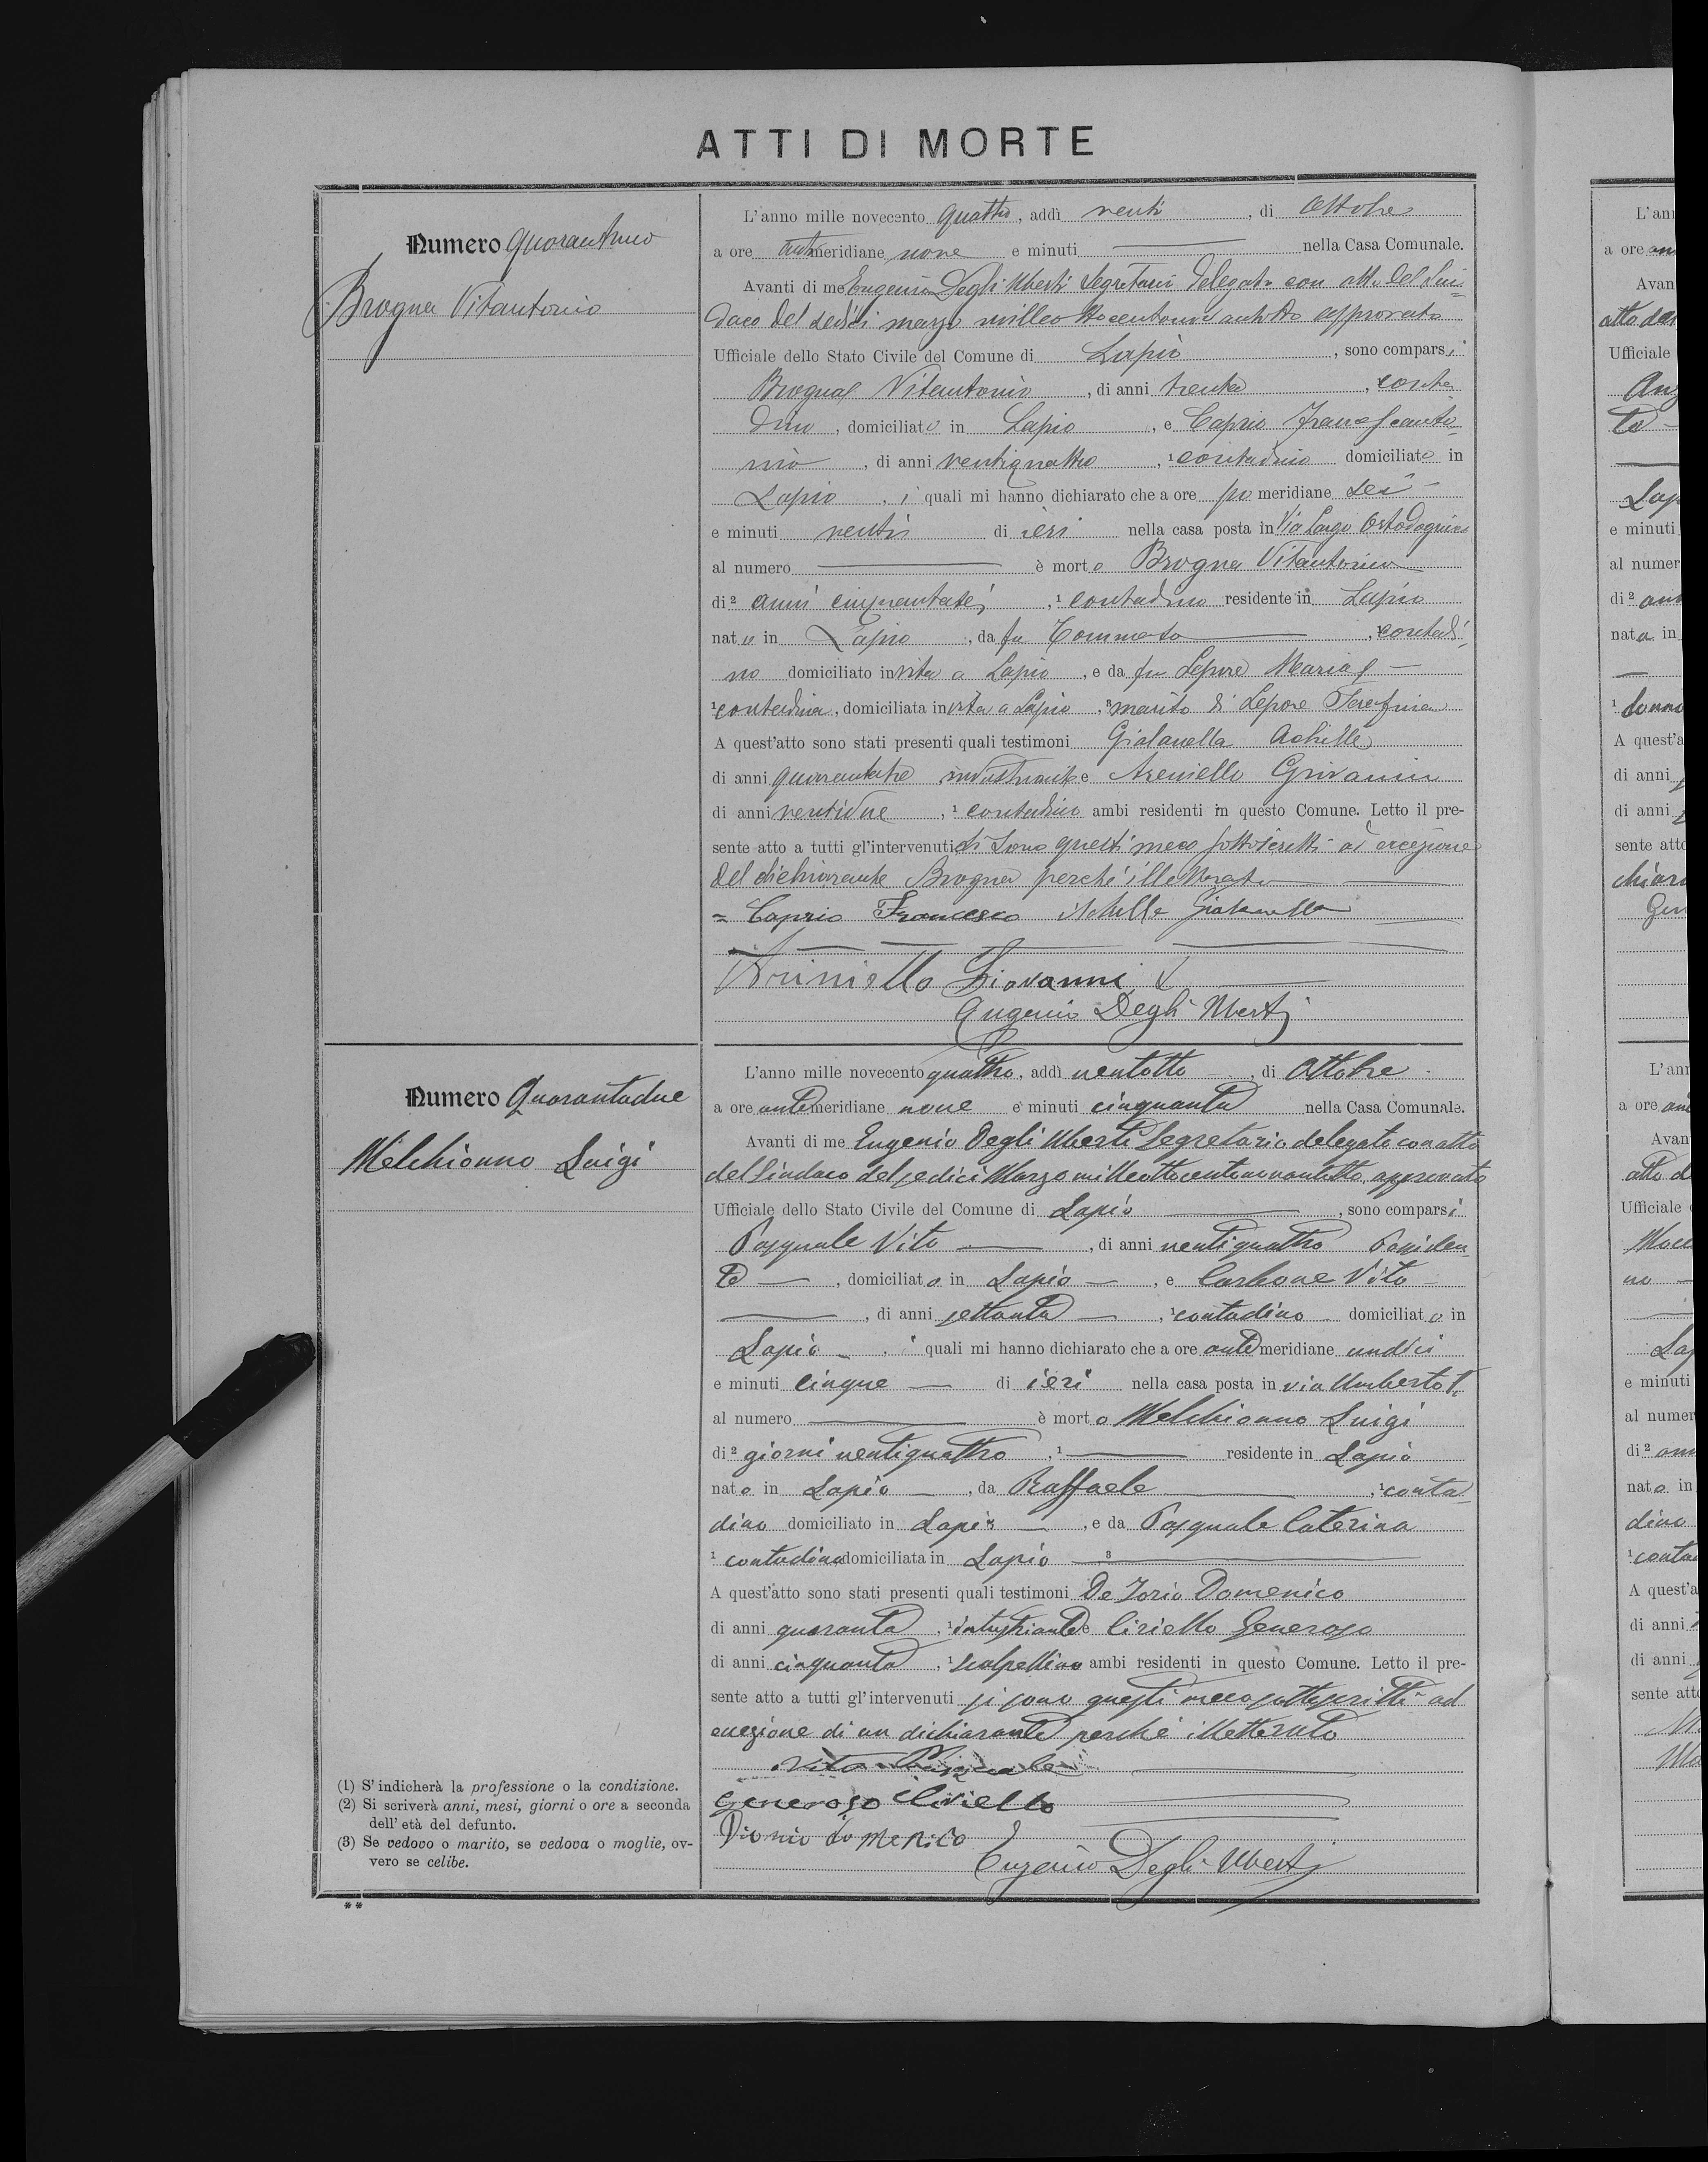 ATTI DI MORTE
Numero Quarantuno
Brogna Vitantonio
L'anno mille novecento quattro, addì venti, di Ottobre
a ore antimeridiane nove e minuti — nella Casa Comunale.
Avanti di me Eugenio Degli Uberti Segretario delegato con atto del Sin=
daco del sedici marzo milleottocentonovantotto approvato
Ufficiale dello Stato Civile del Comune di Lapio, sono comparsi
Brogna Vitantonio, di anni trenta, conta
dino, domiciliato in Lapio, e Caprio Francescanto=
nio, di anni ventiquattro, ¹ contadino domiciliato in
Lapio, i quali mi hanno dichiarato che a ore pomeridiane sei
e minuti venti di ieri nella casa posta in Via Largo
al numero — è morto Brogna Vitantonio
di ² anni cinquantasei, ¹ contadino residente in Lapio
nato in Lapio, da fu Tommaso —, ¹ contadi
no domiciliato in vita a Lapio, e da fu Lepore Maria —
¹ contadina, domiciliata in vita a Lapio, ³ marito di Lepore Serafina
A quest'atto sono stati presenti quali testimoni Gialanella Achille
di anni quarantatre, industriante e Areniello Giovanni
di anni ventidue, ¹ contadino ambi residenti in questo Comune. Letto il pre-
sente atto a tutti gl'intervenuti si sono questi meco sottoscritti ad eccezione
del dichiarante Brogna perché illetterato
= Caprio Francesco Achille Gialanella
Ariniello Giovanni
Eugenio Degli Uberti
Numero Quarantadue
Melchionno Luigi
L'anno mille novecento quattro, addì ventotto, di Ottobre
a ore antemeridiane nove e minuti cinquanta nella Casa Comunale.
Avanti di me Eugenio Degli Uberti Segretario delegato con atto
del Sindaco del sedici Marzo milleottocentonovantotto, approvato
Ufficiale dello Stato Civile del Comune di Lapio —, sono comparsi
Pasquale Vito —, di anni ventiquattro Possiden=
te —, domiciliato in Lapio —, e Carbone Vito
—, di anni settanta —, ¹ contadino domiciliato in
Lapio —, i quali mi hanno dichiarato che a ore antemeridiane undici
e minuti cinque — di ieri nella casa posta in via Umberto I.
al numero — è morto Melchionno Luigi
di ² giorni ventiquattro, ¹ — residente in Lapio
nato in Lapio —, da Raffaele —, ¹ conta=
dino domiciliato in Lapio —, e da Pasquale Caterina
¹ contadina domiciliata in Lapio — ³ —
A quest'atto sono stati presenti quali testimoni De Iorio Domenico
di anni quaranta, ¹ industriante e Ciriello Generoso
di anni cinquanta, ¹ scalpellino ambi residenti in questo Comune. Letto il pre-
sente atto a tutti gl'intervenuti si sono questi meco sottoscritti ad
eccezione di un dichiarante perché illetterato
Vito Pasquale
Generoso Ciriello
Diorio domenico
Eugenio Degli Uberti
(1) S'indicherà la professione o la condizione.
(2) Si scriverà anni, mesi, giorni o ore a seconda
dell'età del defunto.
(3) Se vedovo o marito, se vedova o moglie, ov-
vero se celibe.
**